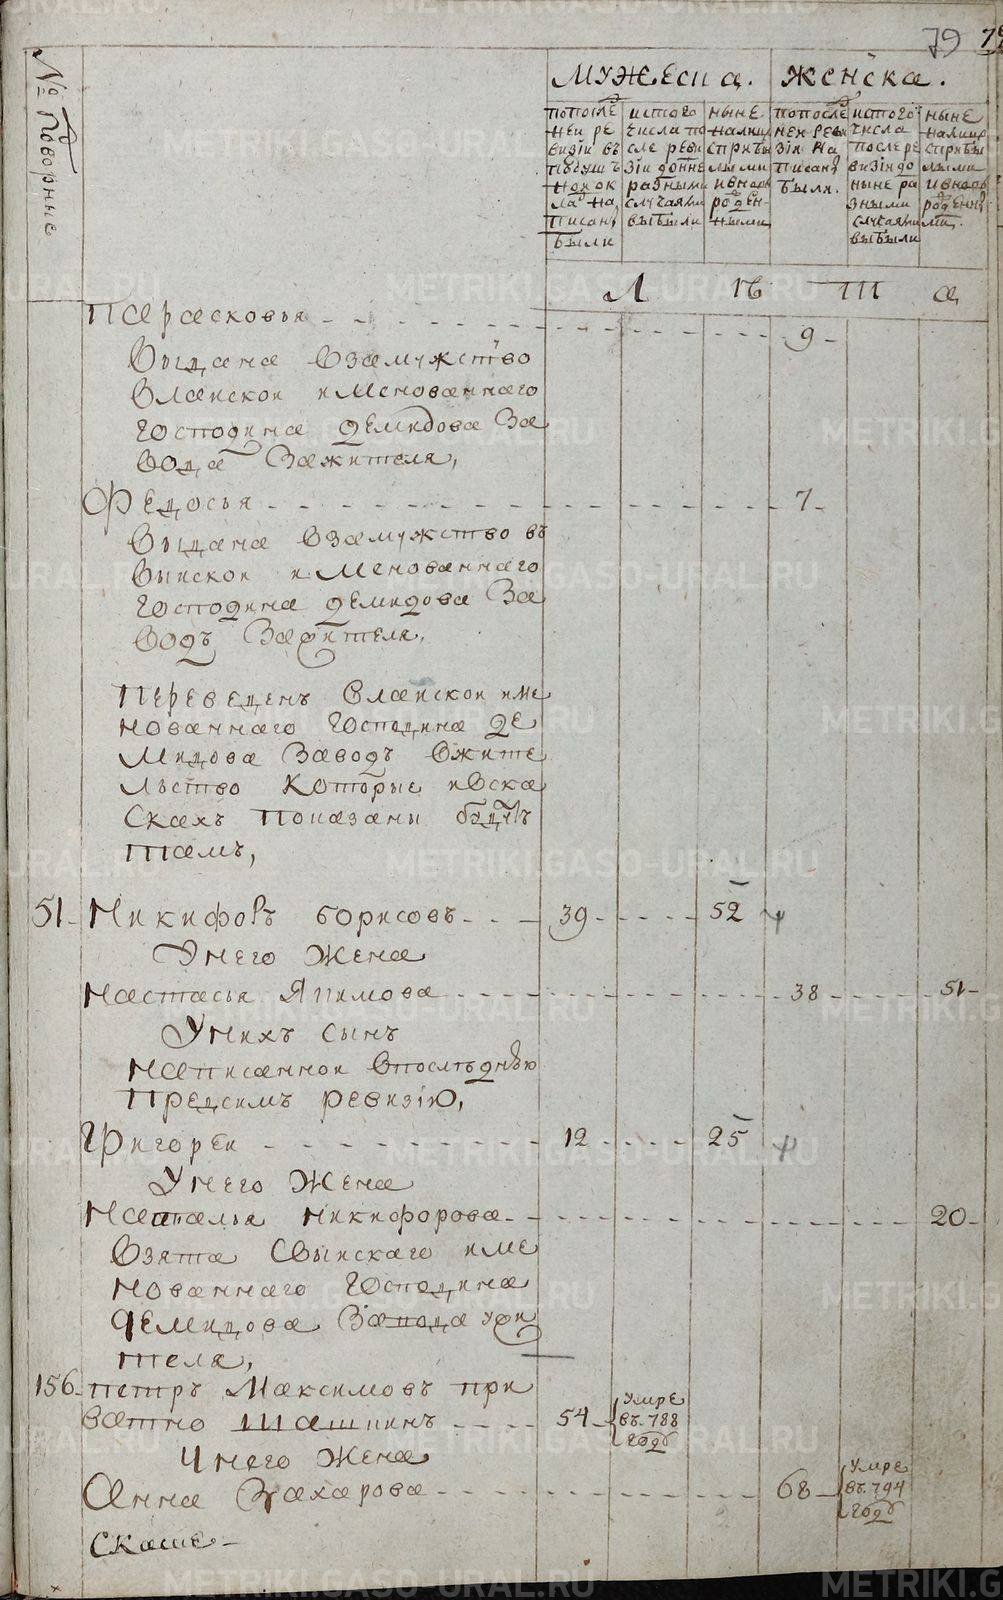 79
№ Дворные
мужеска. женска.
по после ней ревизии въ подушной оклад написаны были
ис того числа после ревизии до ныне разными случаями выбыли
ныне налицо с прибылыми и внов рожденными
по последней ревизии написаны были.
ис того числа после ревизии до ныне разными случаями выбыли
ныне налицо с прибылыми и вновь рожденными.
Л ѣ т а
Парасковья - 9 -
выдана взамужство
влайской имѣнованнаго
господина демидова за
вода зажителя,
Федосья - 7 -
выдана взамужство въ
выйской имѣнованнаго
господина демидова за
водъ зажителя,
переведенъ влайской име
нованнаго господина де
мидова заводъ вжите
льство которые ивска
скахъ показаны будутъ
тамъ,
51 - Никифоръ борисовъ - 39 - 52
У него жена
Настасья Якимова - 38 - 51 -
У нихъ сынъ
написанной впослѣднѣю
предсимъ ревизію,
Григореи - 12 - 25
У него жена
Наталья никифорова - 20 -
взята свыйскаго име
нованнаго господина
демидова завода ужи
теля,
156 - петръ Максимовъ при
ватно шашкинъ - 54 - умре въ. 788 годѹ
У него жена
Анна Захарова - 68 - умре въ. 794 годѹ
скаше -
METRIKI.GASO-URAL.RU